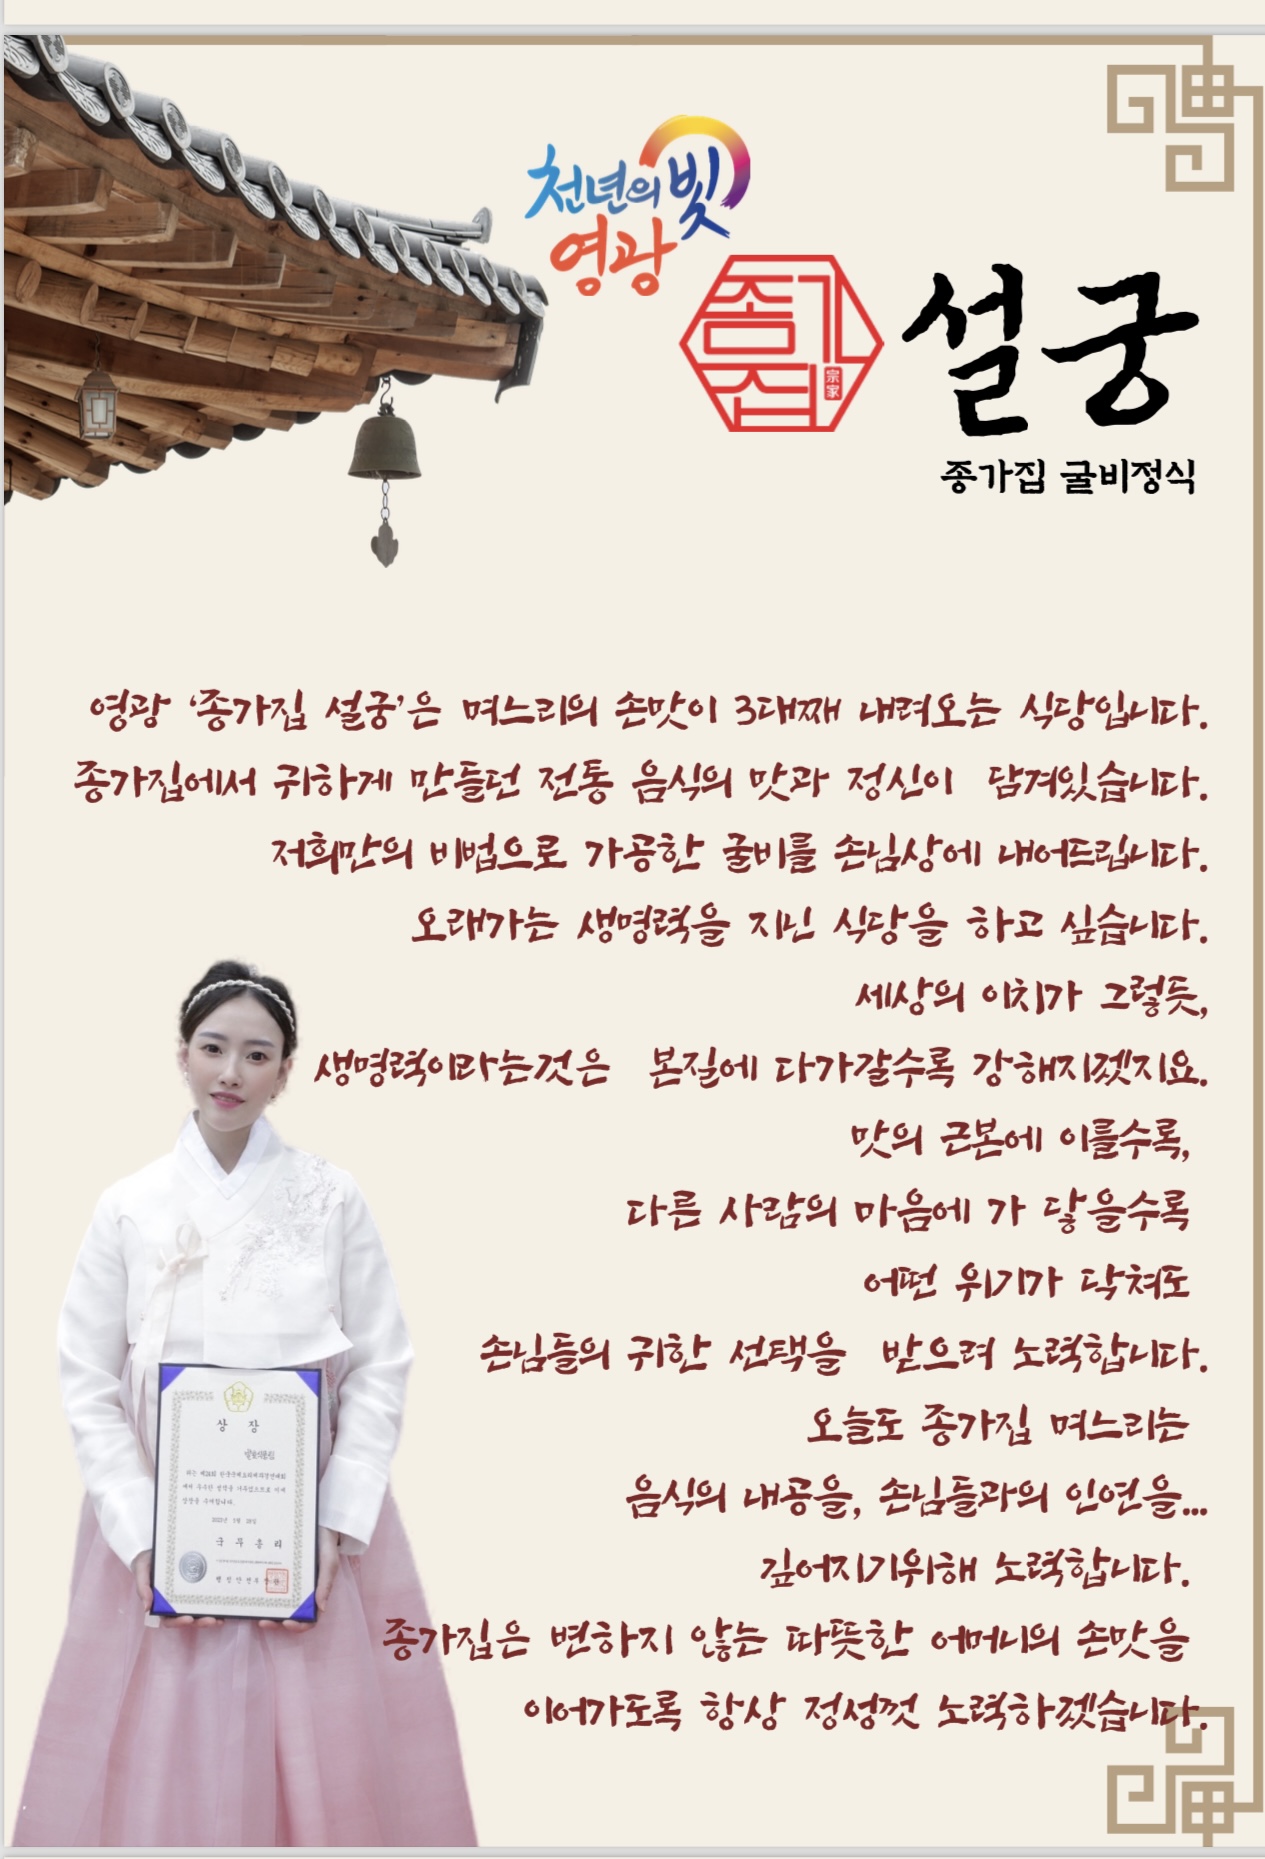 천년의 빛
영광
종가집
宗家
설궁
종가집 굴비정식
영광 '종가집 설궁'은 며느리의 손맛이 3대째 내려오는 식당입니다.
종가집에서 귀하게 만들던 전통 음식의 맛과 정신이 담겨있습니다.
저희만의 비법으로 가공한 굴비를 손님상에 내어드립니다.
오래가는 생명력을 지닌 식당을 하고 싶습니다.
세상의 이치가 그렇듯,
생명력이라는것은 본질에 다가갈수록 강해지겠지요.
맛의 근본에 이를수록,
다른 사람의 마음에 가 닿을수록
어떤 위기가 닥쳐도
손님들의 귀한 선택을 받으려 노력합니다.
오늘도 종가집 며느리는
음식의 내공을, 손님들과의 인연을...
깊어지기위해 노력합니다.
종가집은 변하지 않는 따뜻한 어머니의 손맛을
이어가도록 항상 정성껏 노력하겠습니다.
상 장
국 무 총 리